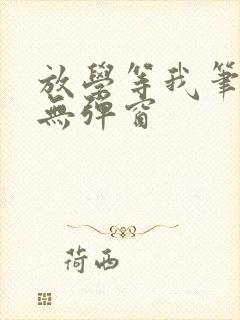 放學等我筆
無彈窗
荷西